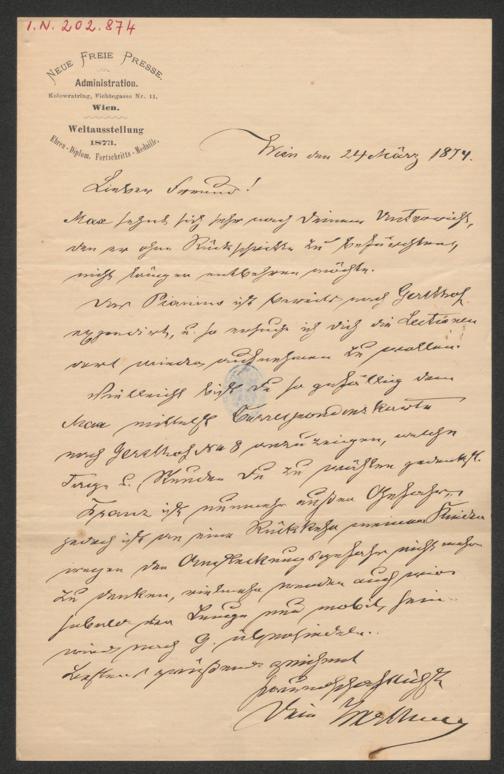 I.N. 202.874
NEUE FREIE PRESSE.
Administration.
Kolowratring, Fichtegasse Nr. 11,
Wien.
Weltausstellung
1873.
Ehren-Diplom. Fortschritts-Medaille.
Wien den 24 März 1874.
Lieber Freund!
Max sehnt sich sehr nach Deinem Unterricht,
den er ohne Rückschritte zu befürchten,
nicht länger entbehren möchte.
Das Pianino ist bereits nach Gersthof
expedirt, u. so ersuche ich Dich die Lectionen
dort wieder aufnehmen zu wollen.
Vielleicht bist Du so gefällig dem
Max mittelst Correspondenzkarte
nach Gersthof No 8 anzuzeigen, welche
Tage u. Stunden Du zu wählen gedenkst.
Franz ist nunmehr außer Gefahr,
jedoch ist an eine Rückkehr meiner Kinder
wegen der Ansteckungsgefahr nicht mehr
zu denken, vielmehr werden auch wir
sobald der Junge nur mobil sein
wird, nach G. übersiedeln.
Bestens grüßend zeichnet
freundschaftlichst
Dein